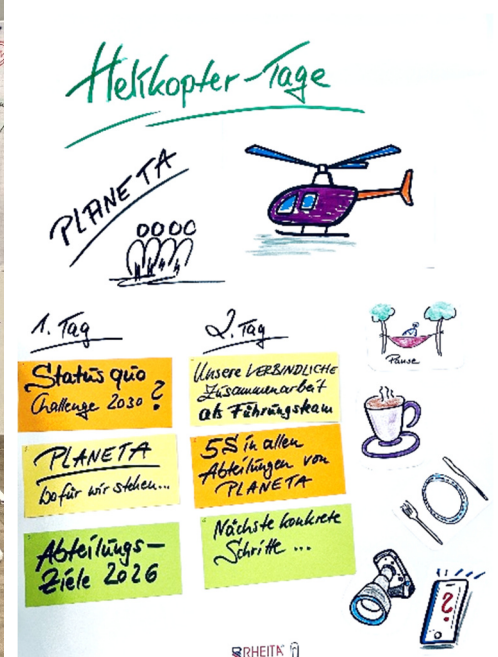 Helikopter-Tage
PLANETA
1. Tag
Status quo
Challenge 2030 ?
PLANETA
Wofür wir stehen...
Abteilungs-
Ziele 2026
2. Tag
Unsere VERBINDLICHE
Zusammenarbeit
als Führungsteam
5S in allen
Abteilungen von
PLANETA
Nächste konkrete
Schritte ...
Pause
?
RHEITA